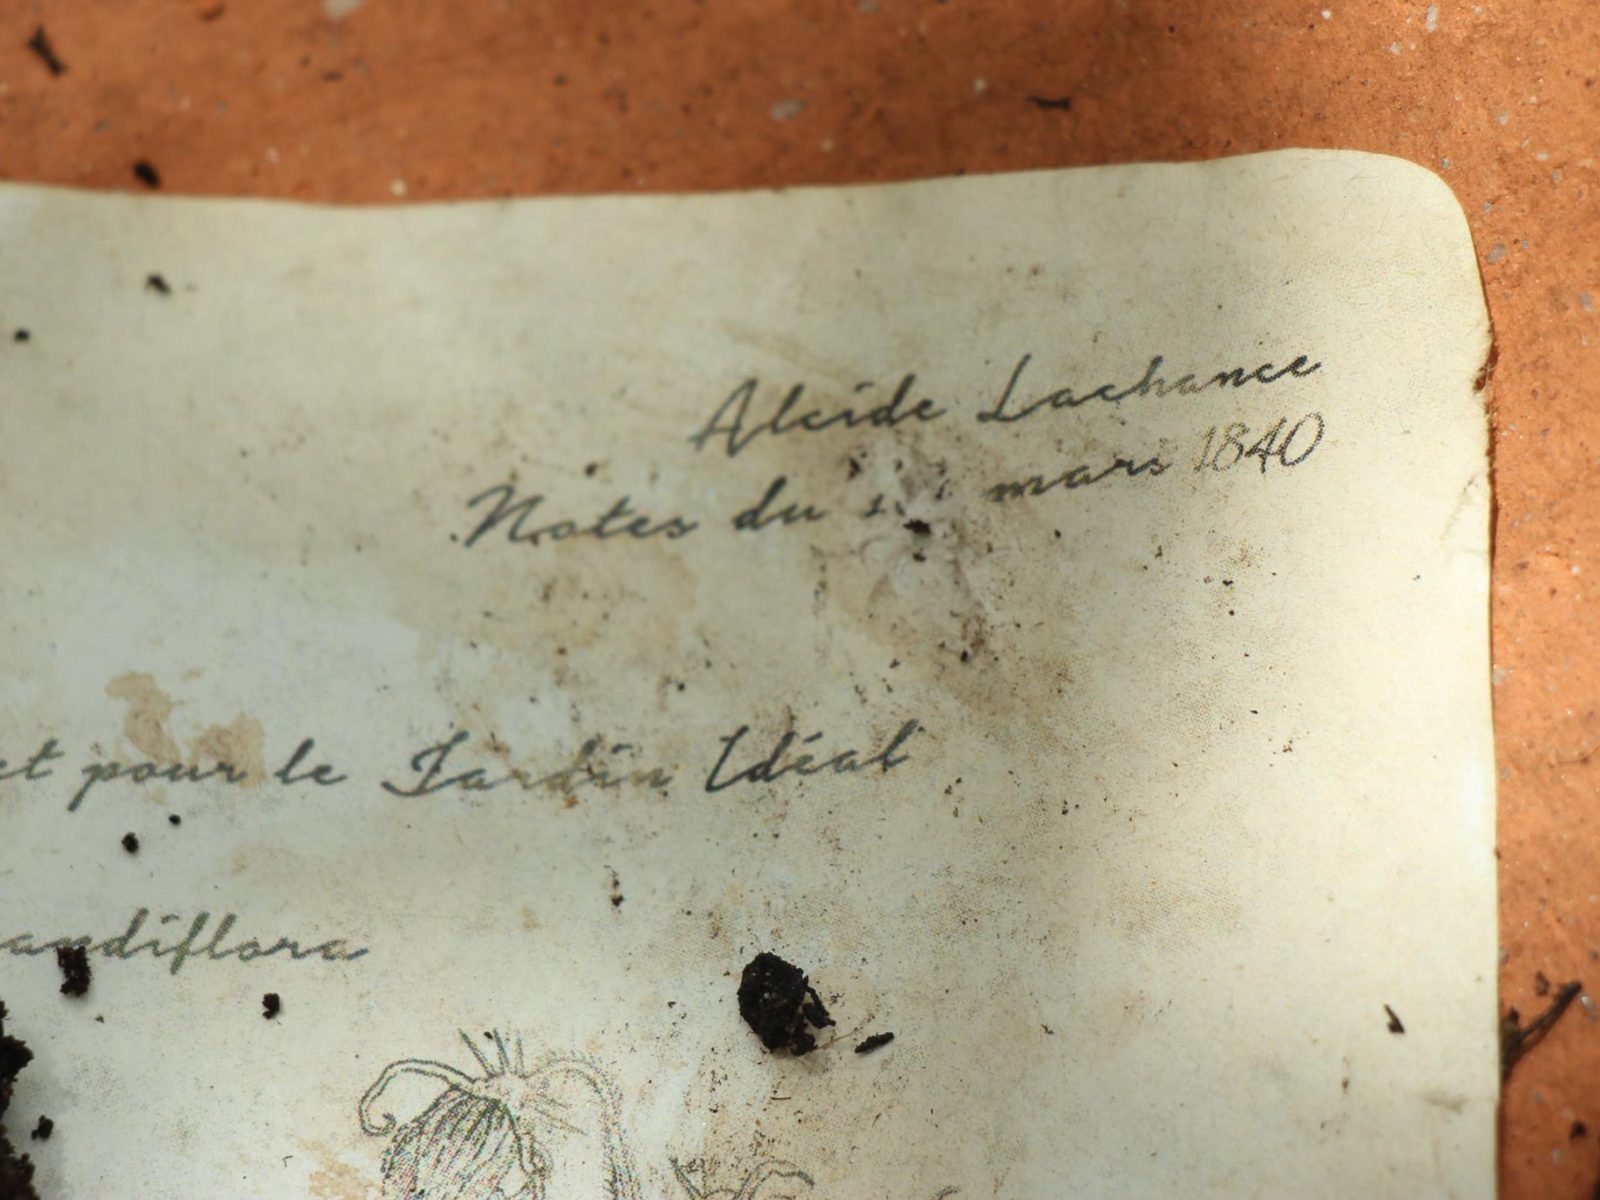 Alcide Lachance
Notes du mars 1840
et pour le Jardin Idéal
andiflora